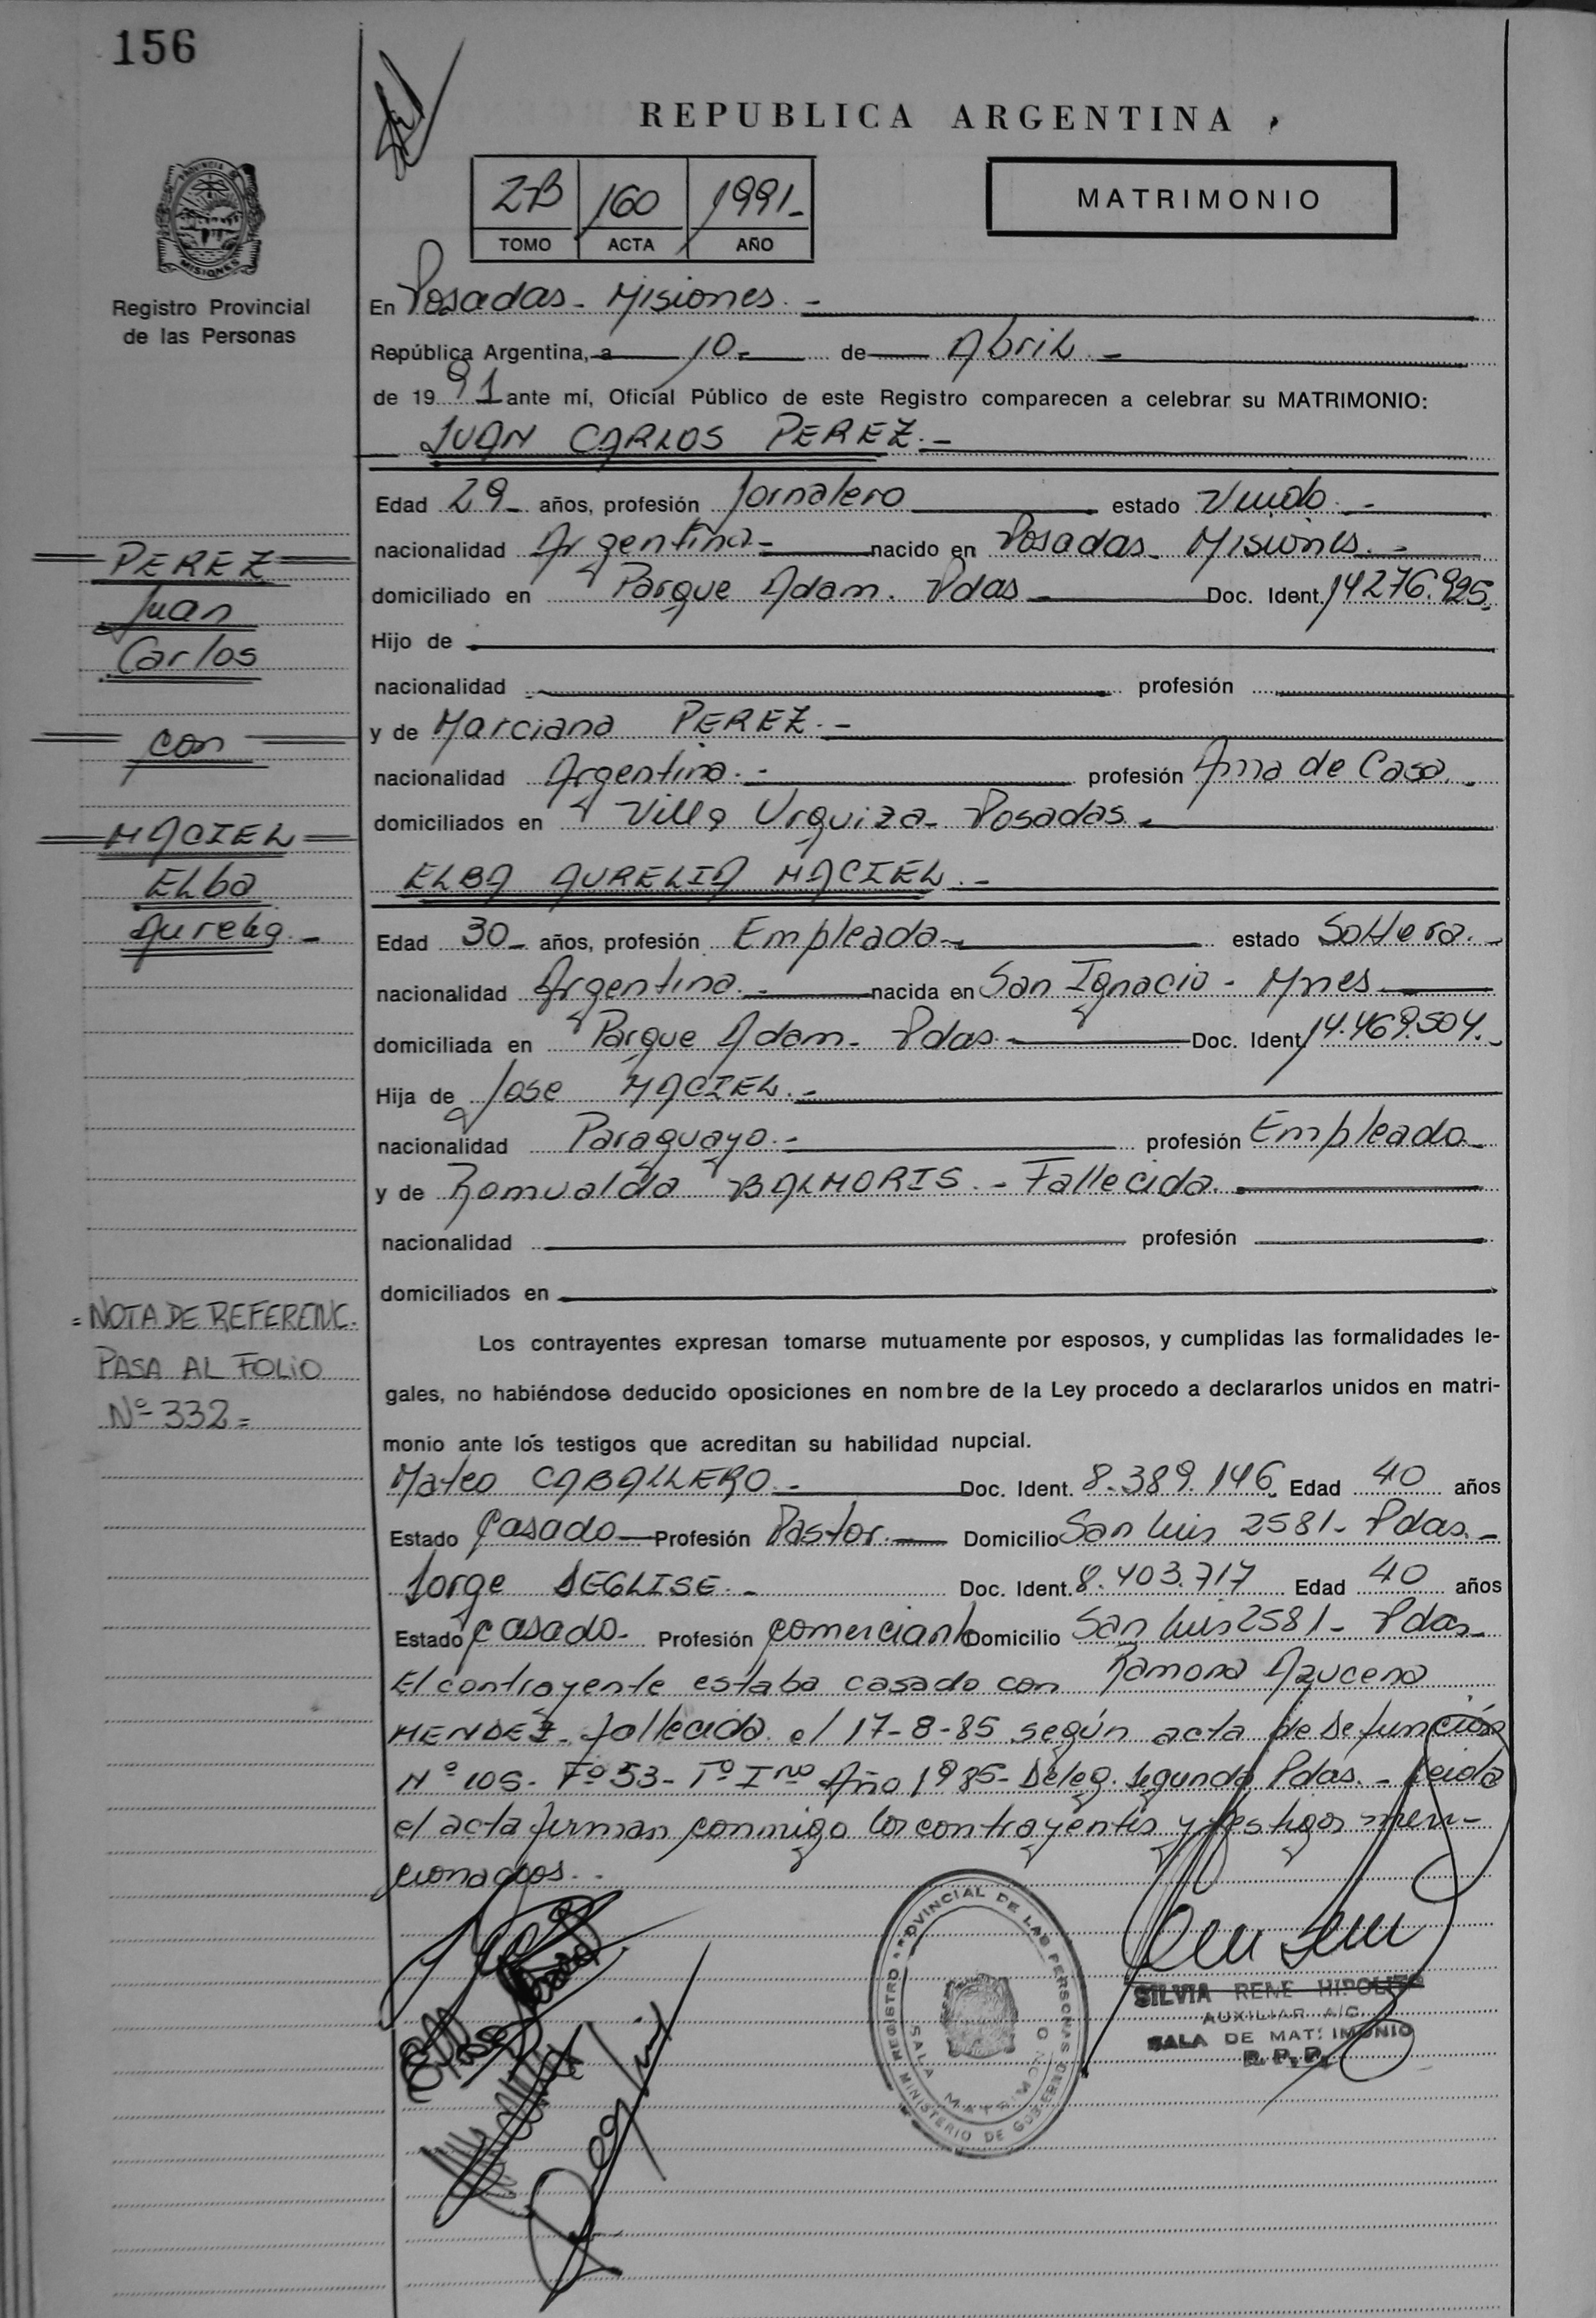 156
REPUBLICA ARGENTINA
2B 160 1991-
TOMO ACTA AÑO
MATRIMONIO
PROVINCIA DE
MISIONES
Registro Provincial
de las Personas
En Posadas - Misiones. -
República Argentina, a 10- de Abril -
de 19 91 ante mí, Oficial Público de este Registro comparecen a celebrar su MATRIMONIO:
JUAN CARLOS PEREZ. -
Edad 29- años, profesión Jornalero estado Viudo. -
nacionalidad Argentina- nacido en Posadas - Misiones. -
domiciliado en Parque Adam. Pdas - Doc. Ident. 14276.925.
Hijo de
nacionalidad profesión
y de Marciana PEREZ. -
nacionalidad Argentina. - profesión Ama de Casa -
domiciliados en Villa Urquiza - Posadas. -
ELBA AURELIA MACIEL. -
Edad 30- años, profesión Empleada - estado Soltera. -
nacionalidad Argentina. - nacida en San Ignacio - Mnes
domiciliada en Parque Adam - Pdas. - Doc. Ident. 14.469.504. -
Hija de Jose MACIEL. -
nacionalidad Paraguayo. - profesión Empleado -
y de Romualda BALMORIS. - Fallecida.
nacionalidad profesión
domiciliados en
Los contrayentes expresan tomarse mutuamente por esposos, y cumplidas las formalidades le-
gales, no habiéndose deducido oposiciones en nombre de la Ley procedo a declararlos unidos en matri-
monio ante los testigos que acreditan su habilidad nupcial.
Mateo CABALLERO. - Doc. Ident. 8.389.146 Edad 40 años
Estado Casado - Profesión Pastor. - Domicilio San Luis 2581 - Pdas. -
Jorge DEGLISE. - Doc. Ident. 8.403.717 Edad 40 años
Estado Casado - Profesión Comerciante Domicilio San Luis 2581 - Pdas -
El contrayente estaba casado con Ramona Azucena
MENDEZ - fallecida el 17-8-85 según acta de Defunción
Nº 105 - Fº 53 - Tº I no Año 1985 - Deleg. Segunda Pdas. - Leida
el acta firman conmigo los contrayentes y testigos men-
cionados. -
PEREZ
Juan
Carlos
con
MACIEL
Elba
Aurelia. -
= NOTA DE REFERENC.
PASA AL FOLIO
Nº 332 =
REGISTRO PROVINCIAL DE LAS PERSONAS
MINISTERIO DE GOBIERNO
SALA MATRIMONIO
SILVIA RENE HIPOLITO
AUXILIAR A/C.
SALA DE MATRIMONIO
R. P. P.